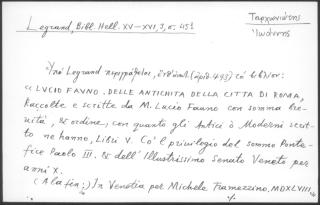 Legrand, Bibl. Hell. XV–XVI, 3, σ. 451
Ταρχανιώτης
Ἰωάννης
Ὑπὸ Legrand περιγράφεται, (ἀριθ. 493) τὸ βιβλίον:
« LUCIO FAUNO. DELLE ANTICHITA DELLA CITTA DI ROMA,
Raccolte e scritte da M. Lucio Fauno con somma bre-
uità, & ordine, con quanto gli Antichi ò Moderni scrit-
to ne hanno, Libri V. Co'l priuilegio del sommo Ponte-
fice Paolo III. & dell' Illustrissimo Senato Veneto per
anni X.
(A la fin:) In Venetia per Michele Tramezzino. MDXLVIII,